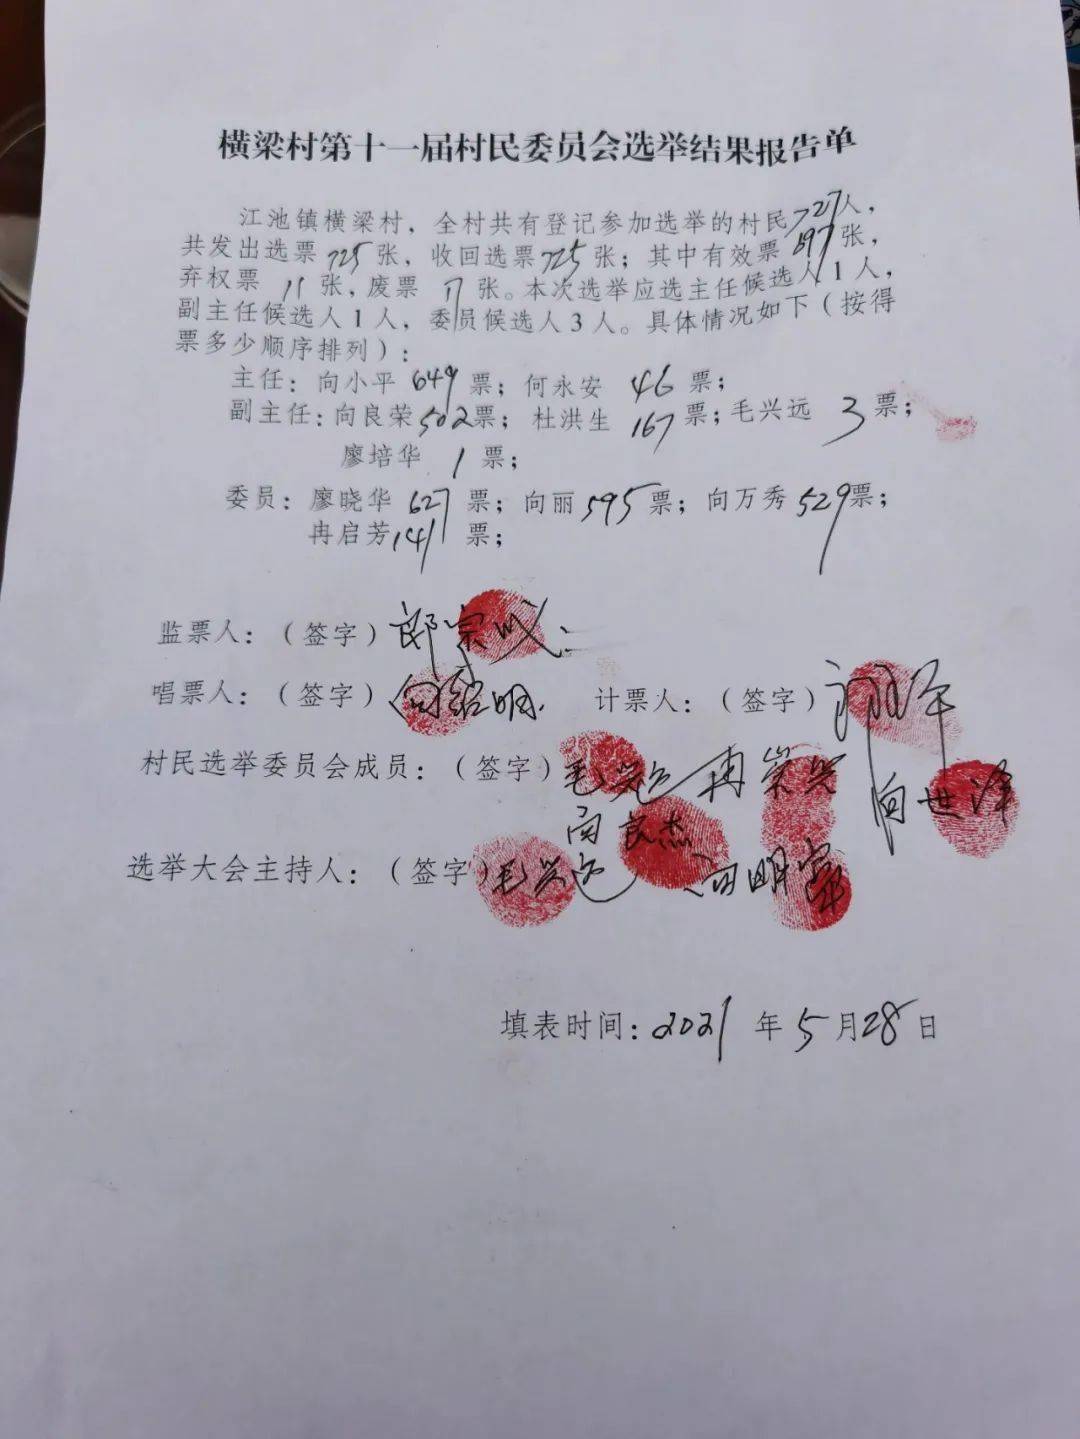 横梁村第十一届村民委员会选举结果报告单
江池镇横梁村，全村共有登记参加选举的村民727人，
共发出选票725张，收回选票725张；其中有效票697张，
弃权票11张，废票17张。本次选举应选主任候选人1人，
副主任候选人1人，委员候选人3人。具体情况如下（按得
票多少顺序排列）：
主任：向小平649票；何永安 46票；
副主任：向良荣502票；杜洪生 167票；毛兴远 3票；
廖培华 1票；
委员：廖晓华627票；向丽595票；向万秀529票；
冉启芳141票；
监票人：（签字）郎宗成
唱票人：（签字）向绍明 计票人：（签字）
村民选举委员会成员：（签字）毛兴远 冉崇兴
向良杰 向世泽
选举大会主持人：（签字）毛兴远 向明
填表时间：2021年5月28日